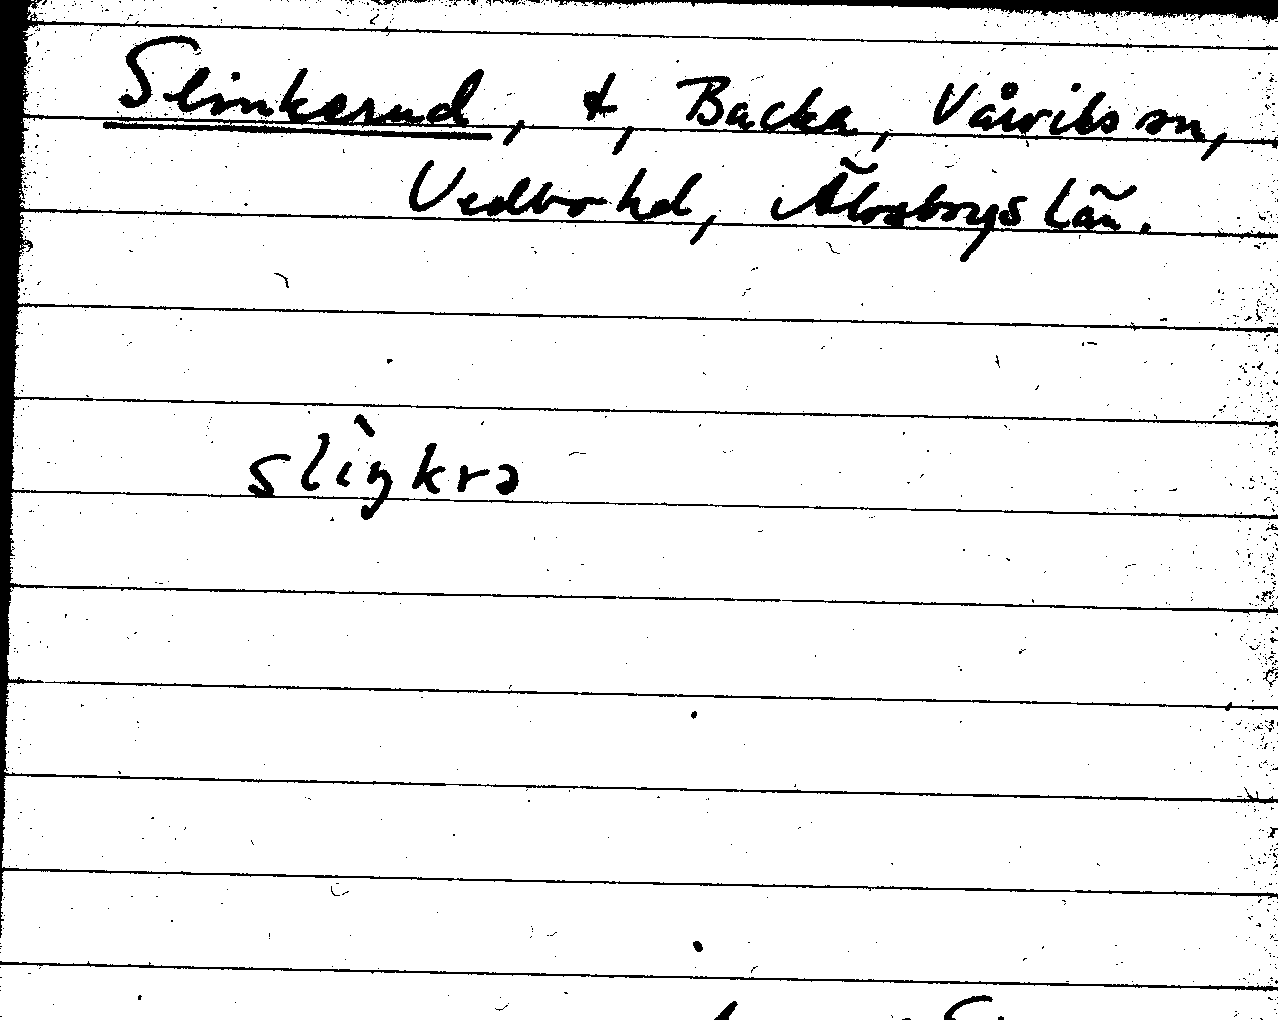 Slinkerud, t, Backa, Vårviks sn,
Vedbo hd, Älvsborgs län.
slìŋkrə